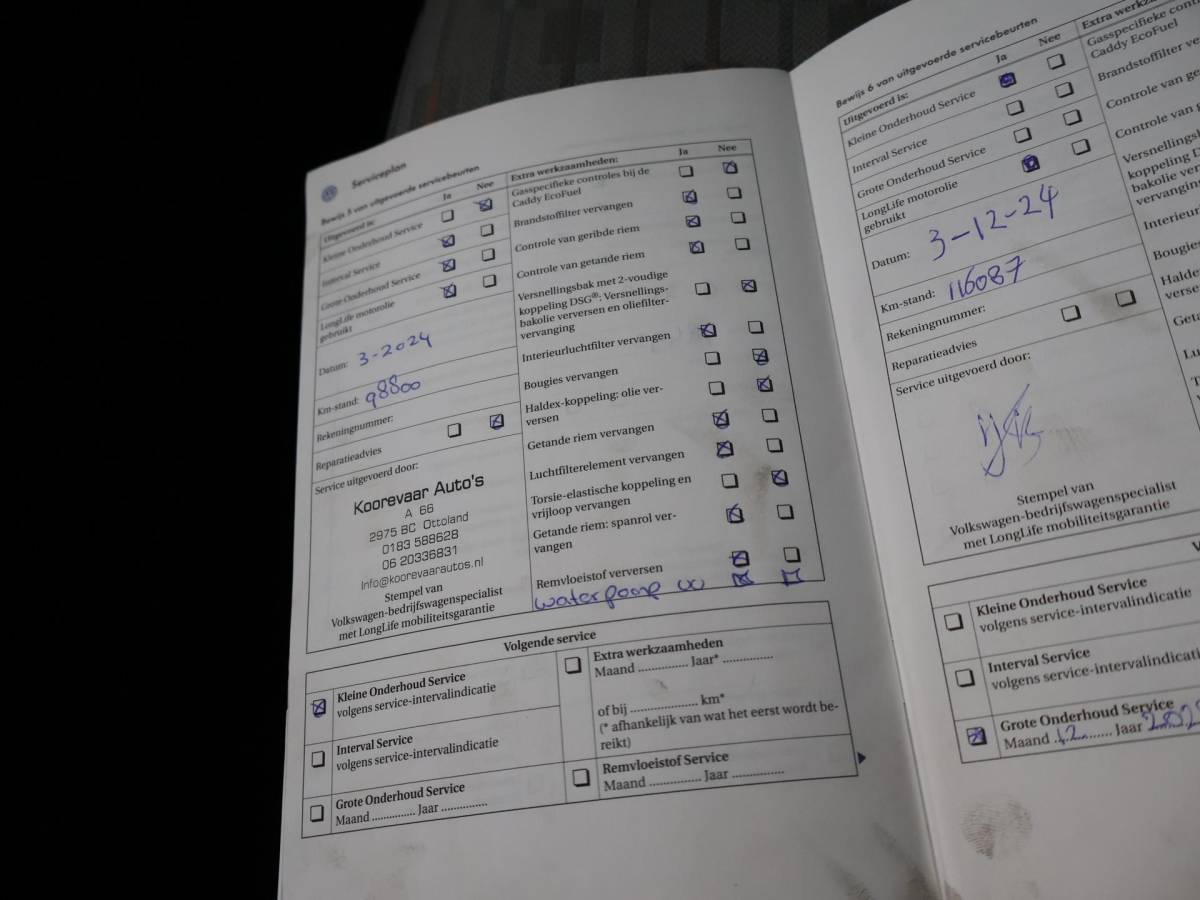 Serviceplan
Bewijs 5 van uitgevoerde servicebeurten
Uitgevoerd is: Ja Nee
Kleine Onderhoud Service
Interval Service
Grote Onderhoud Service
LongLife motorolie
gebruikt
Datum: 3-2024
Km-stand: 98800
Rekeningnummer:
Reparatieadvies
Service uitgevoerd door:
Koorevaar Auto's
A 66
2975 BC Ottoland
0183 588628
06 20336831
Info@koorevaarautos.nl
Stempel van
Volkswagen-bedrijfswagenspecialist
met LongLife mobiliteitsgarantie
Extra werkzaamheden: Ja Nee
Gasspecifieke controles bij de
Caddy EcoFuel
Brandstoffilter vervangen
Controle van geribde riem
Controle van getande riem
Versnellingsbak met 2-voudige
koppeling DSG®: Versnellings-
bakolie verversen en oliefilter-
vervanging
Interieurluchtfilter vervangen
Bougies vervangen
Haldex-koppeling: olie ver-
versen
Getande riem vervangen
Luchtfilterelement vervangen
Torsie-elastische koppeling en
vrijloop vervangen
Getande riem: spanrol ver-
vangen
Remvloeistof verversen
waterpomp
Volgende service
Kleine Onderhoud Service
volgens service-intervalindicatie
Interval Service
volgens service-intervalindicatie
Grote Onderhoud Service
Maand ............... Jaar ...............
Extra werkzaamheden
Maand ............... Jaar* ...............
of bij .................... km*
(* afhankelijk van wat het eerst wordt be-
reikt)
Remvloeistof Service
Maand ............... Jaar ...............
Bewijs 6 van uitgevoerde servicebeurten
Uitgevoerd is: Ja Nee
Kleine Onderhoud Service
Interval Service
Grote Onderhoud Service
LongLife motorolie
gebruikt
Datum: 3-12-24
Km-stand: 116087
Rekeningnummer:
Reparatieadvies
Service uitgevoerd door:
Stempel van
Volkswagen-bedrijfswagenspecialist
met LongLife mobiliteitsgarantie
Extra
Gasspecifieke
Caddy EcoFuel
Brandstoffilter
Controle van
Controle van
koppeling
bakolie
Bougies
Kleine Onderhoud Service
volgens service-intervalindicatie
Interval Service
Grote Onderhoud Service
Maand 12 Jaar